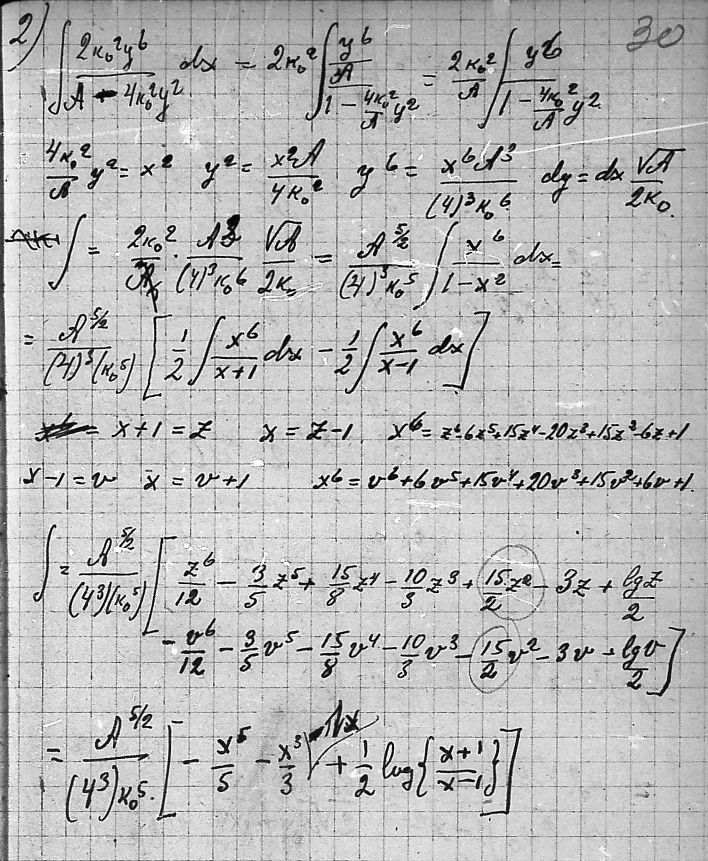 2) ∫ 2κ₀²y⁶/(A - 4κ₀²y²) dx = 2κ₀² ∫ (y⁶/A)/(1 - (4κ₀²/A)y²) = 2κ₀²/A ∫ y⁶/(1 - (4κ₀²/A)y²) 30
4κ₀²/A y² = x² y² = x²A/4κ₀² y⁶ = x⁶A³/((4)³κ₀⁶) dy = dx √A/2κ₀.
∫ = 2κ₀²/A · A³/((4)³κ₀⁶) √A/2κ₀ = A^(5/2)/((4)³κ₀⁵) ∫ x⁶/(1-x²) dx =
= A^(5/2)/((4)³(κ₀⁵)) [ 1/2 ∫ x⁶/(x+1) dx - 1/2 ∫ x⁶/(x-1) dx ]
x+1 = z x = z-1 x⁶ = z⁶-6z⁵+15z⁴-20z³+15z²-6z+1
x-1 = v x = v+1 x⁶ = v⁶+6v⁵+15v⁴+20v³+15v²+6v+1.
∫ = A^(5/2)/((4³)(κ₀⁵)) [ z⁶/12 - 3/5 z⁵ + 15/8 z⁴ - 10/3 z³ + 15/2 z² - 3z + lg z/2
- v⁶/12 - 3/5 v⁵ - 15/8 v⁴ - 10/3 v³ - 15/2 v² - 3v + lg v/2 ]
= A^(5/2)/((4³)κ₀⁵.) [ - x⁵/5 - x³/3 - x + 1/2 log{(x+1)/(x-1)} ]